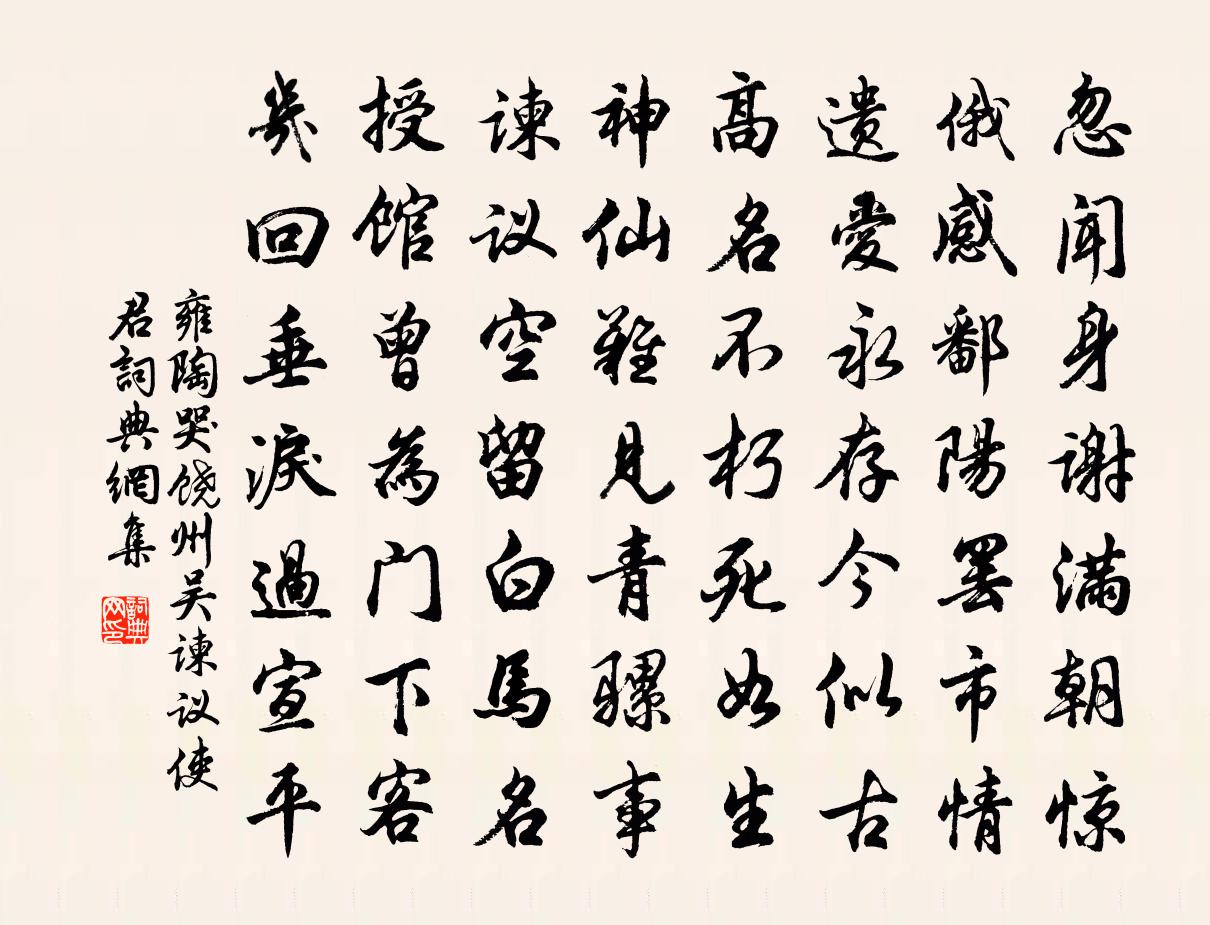 忽闻身谢满朝惊
俄感鄱陽罢市情
遗愛永存今似古
高名不朽死如生
神仙難見青騾事
谏议空留白馬名
授馆曾為门下客
幾回垂淚過宣平
雍陶哭饶州吴谏议使
君詞典網集
詞典
网印